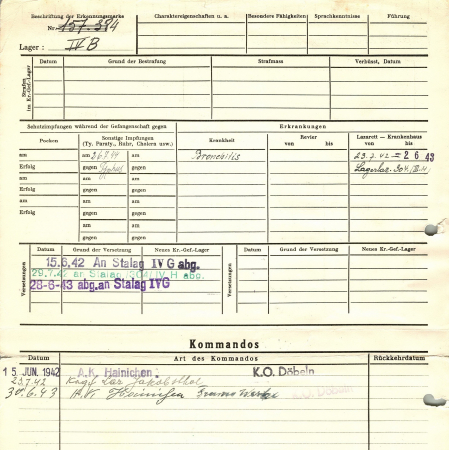 Beschriftung der Erkennungsmarke
Nr. 157.384
Lager: IV B
Charaktereigenschaften u. a.
Besondere Fähigkeiten
Sprachkenntnisse
Führung
Strafen im Kr.-Gef.-Lager
Datum
Grund der Bestrafung
Strafmass
Verbüsst, Datum
Schutzimpfungen während der Gefangenschaft gegen
Erkrankungen
Pocken
Sonstige Impfungen
(Ty. Paraty., Ruhr, Cholera usw.)
Krankheit
Revier
von bis
Lazarett – Krankenhaus
von bis
am am 26.2.44 am
Erfolg gegen gegen
am am am
Erfolg gegen gegen
am am am
Erfolg gegen gegen
am am
gegen gegen
Bronchitis
23.7.42 = 2 6 43
Lagerlaz. 304/IV H
Versetzungen
Datum
Grund der Versetzung
Neues Kr.-Gef.-Lager
Versetzungen
Datum
Grund der Versetzung
Neues Kr.-Gef.-Lager
15.6.42 An Stalag IV G abg.
29.7.42 an Stalag 304/IV H abg.
28-6-43 abg. an Stalag IVG
Kommandos
Datum
Art des Kommandos
Rückkehrdatum
15. JUN. 1942 A.K. Hainichen K.O. Döbeln
23.7.42
30.6.43 K.O. Döbeln